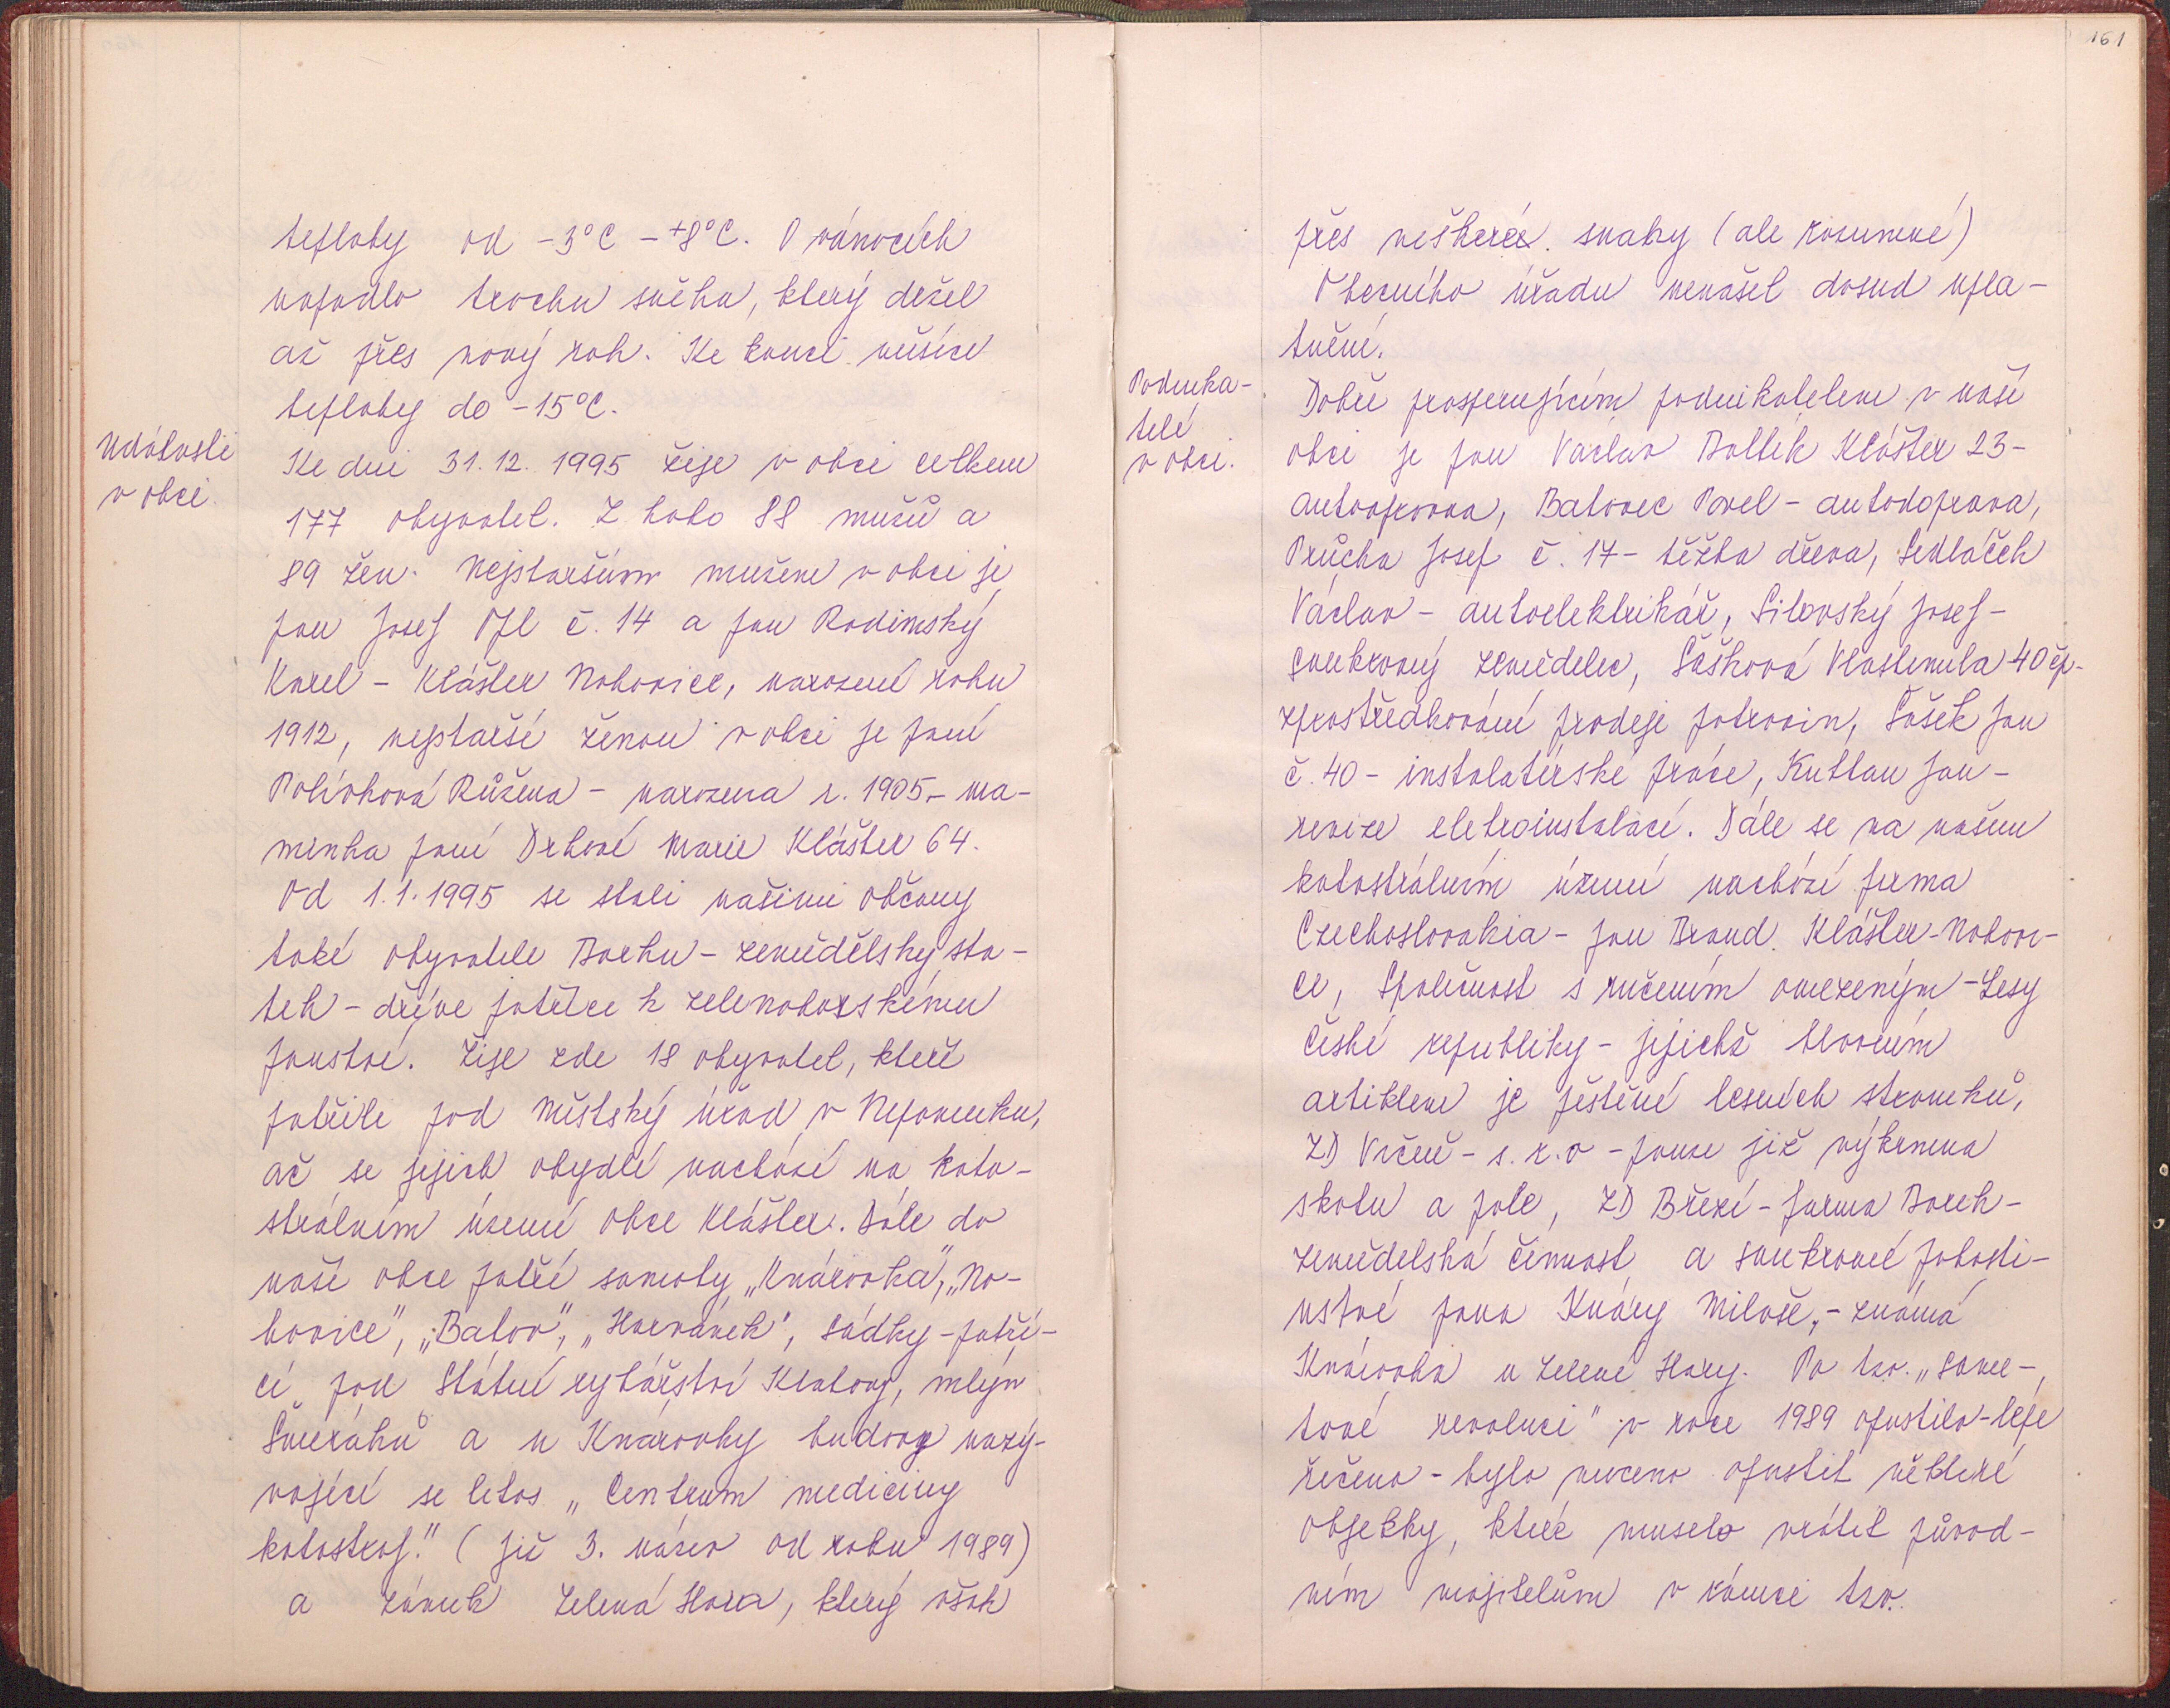 teploty od -3°C - +8°C. O vánocích
napadlo trochu sněhu, který držel
až přes nový rok. Ke konci měsíce
teploty do -15°C.
Události
v obci.
Ke dni 31.12. 1995 žije v obci celkem
177 obyvatel. Z toho 88 mužů a
89 žen. Nejstarším mužem v obci je
pan Josef Opl č. 14 a pan Radimský
Karel - Klášter Nohovice, narození roku
1912, nejstarší ženou v obci je paní
Polívková Růžena - narozena r. 1905 - ma-
minka paní Drhové Marie Klášter 64.
Od 1.1.1995 se stali našimi občany
také obyvatelé Borku - zemědělský sta-
tek - dříve patřící k zelenohorskému
panství. Žije zde 18 obyvatel, kteří
patřili pod Městský úřad v Nepomuku,
ač se jejich obydlí nachází na kata-
strálním území obce Klášter. Dále do
naší obce patří samoty „Knárovka", „No-
hovice", „Batov", „Harvánek", sádky - patří-
cí pod Státní rybářství Klatovy, mlýn
Šmeráků a u Knárovky budovy nazý-
vající se letos „Centrum medicíny
katastrof." (již 3. název od roku 1989)
a zámek Zelená Hora, který však
161
přes veškeré snahy (ale rozumné)
Obecního úřadu nenašel dosud upla-
tnění.
Podnika-
telé
v obci.
Dobře prosperujícím podnikatelem v naší
obci je pan Václav Boltík Klášter 23 -
autoopravna, Batovec Pavel - autodoprava,
Průcha Josef č. 17 - těžba dřeva, Sedláček
Václav - autoelektrikář, Silovský Josef -
soukromý zemědělec, Šašková Vlastimila 40 čp-
zprostředkování prodeje potravin, Šašek Jan
č. 40 - instalatérské práce, Kutlan Jan -
revize eletroinstalací. Dále se na našem
katastrálním území nachází firma
Czechoslovakia - pan Brand Klášter-Nohovi-
ce, Společnost s ručením omezeným - Lesy
České republiky - jejichž hlavním
artiklem je pěstění lesních stromků,
ZD Vrčeň - s.r.o - pouze již výkrmna
skotu a pole, ZD Březí - farma Borek -
zemědělská činnost a soukromé pohosti-
nství pana Knáry Miloše, - známá
Knárovka u Zelené Hory. Po tzv. „Same-
tové revoluci" v roce 1989 opustilo - lépe
řečeno - bylo nuceno opustit některé
objekty, které muselo vrátit původ-
ním majitelům v rámci tzv.